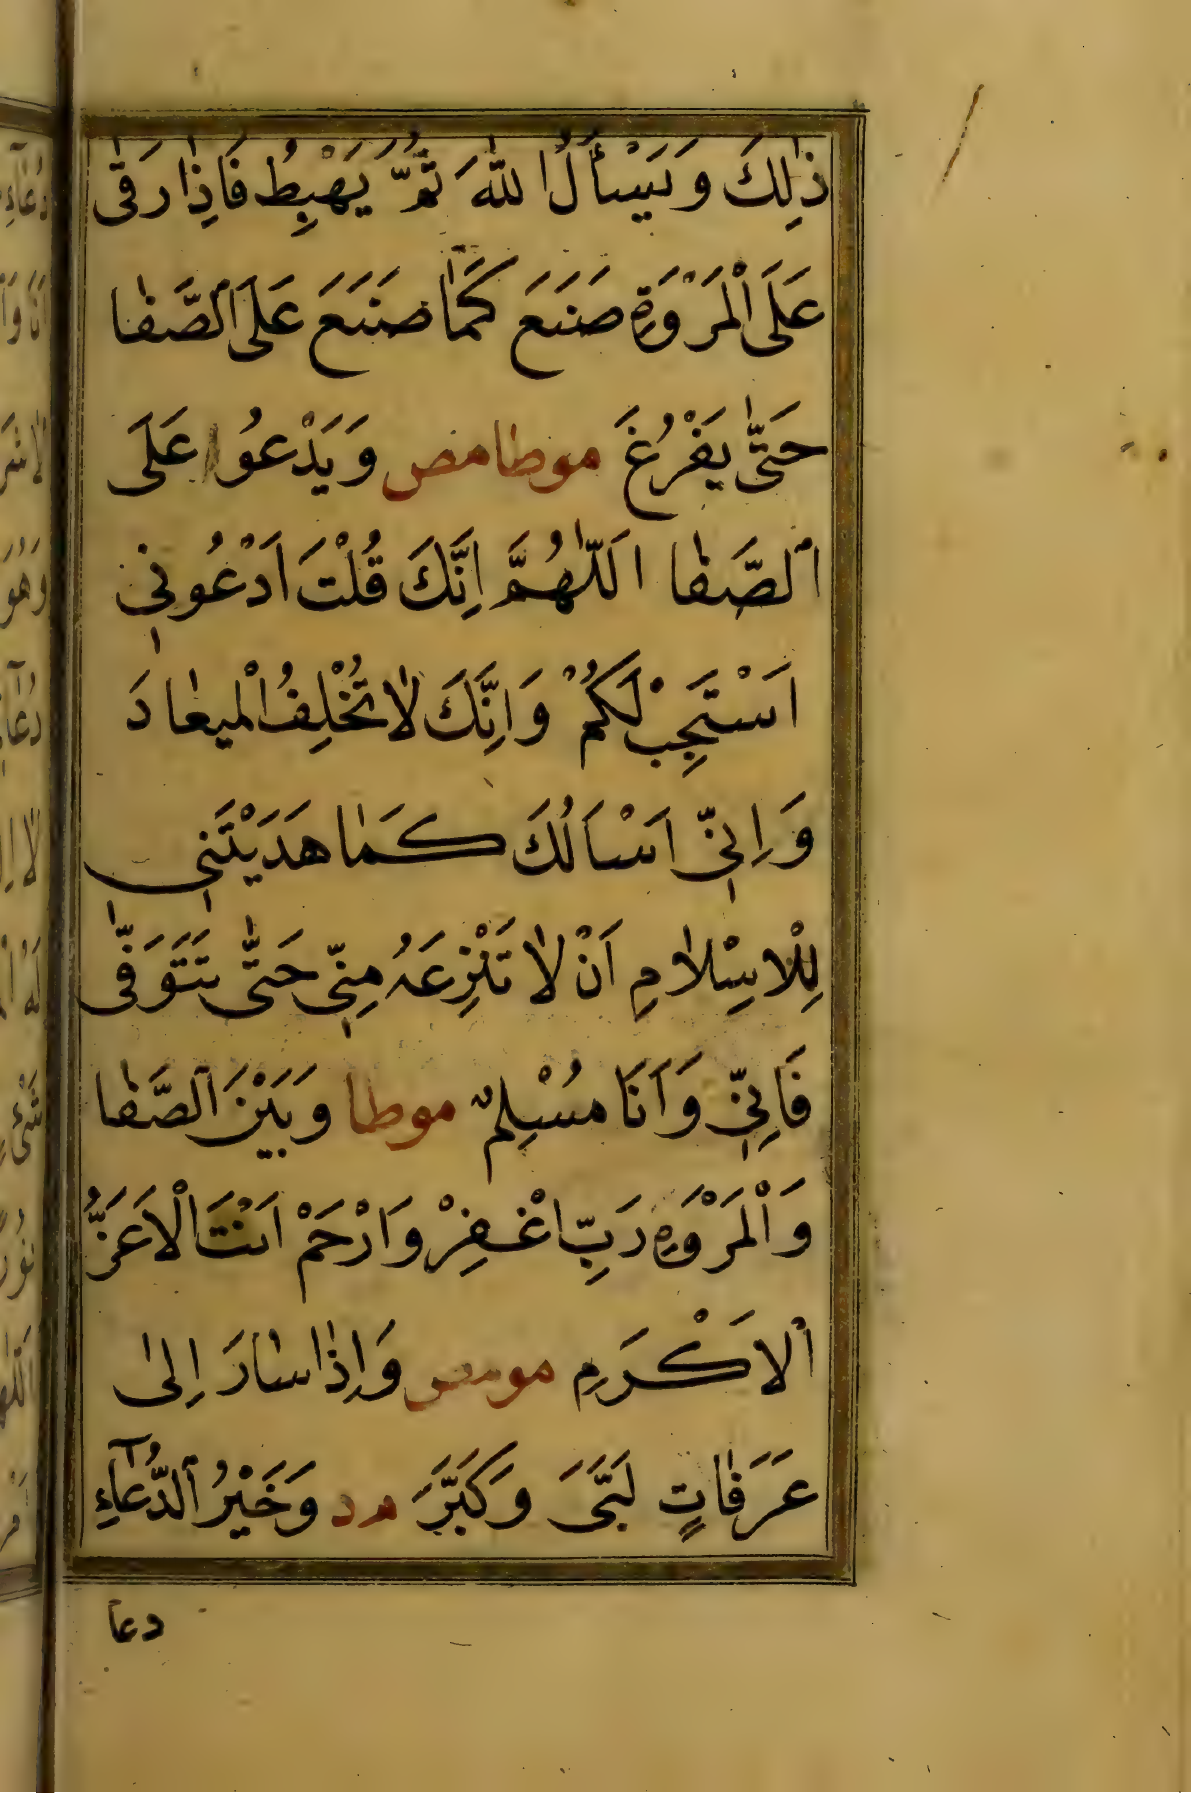 ذٰلِكَ وَيَسْأَلُ اللّٰهَ ثُمَّ يَهْبِطُ فَاِذٰا رَقٰى
عَلَى الْمَرْوَةِ صَنَعَ كَمٰا صَنَعَ عَلَى الصَّفٰا
حَتّٰى يَفْرُغَ موطا مص وَيَدْعُوا عَلَى
الصَّفٰا اَللّٰهُمَّ اِنَّكَ قُلْتَ اَدْعُونِي
اَسْتَجِبْ لَكُمْ وَاِنَّكَ لٰا تُخْلِفُ الْميعٰادَ
وَاِنِّي اَسْاَلُكَ كَمٰا هَدَيْتَنِي
لِلْاِسْلٰامِ اَنْ لٰا تَنْزِعَهُ مِنِّي حَتّٰى تَتَوَفّٰى
فَاِنِّي وَاَنَا مُسْلِمٌ موطا وَبَيْنَ الصَّفٰا
وَالْمَرْوَةِ رَبِّ اغْفِرْ وَارْحَمْ اَنْتَ الْاَعَزُّ
الْاَكْرَمِ مو مص وَاِذٰا سٰارَ اِلٰى
عَرَفٰاتٍ لَبَّىَ وَكَبَّرَ م د وَخَيْرُ الدُّعَآءِ
دعا
دُعَآءِ
اَنَا وَاَ
لٰا شَر
وَهُوَ
دُعَآ
لٰا اِلٰ
لَهُ ا
شَىْءٍ
نُورً
اَللّٰه